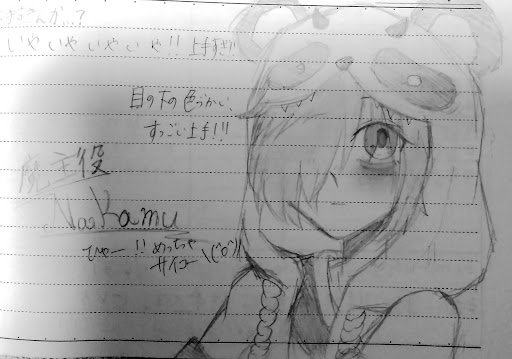 いやいやいやいや!! 上手すぎ!!
目の下の色づかい、
すっごい上手!!!
魔王役
NaaKamu
ひゃー!!めっちゃ
サイコー\(^o^)/